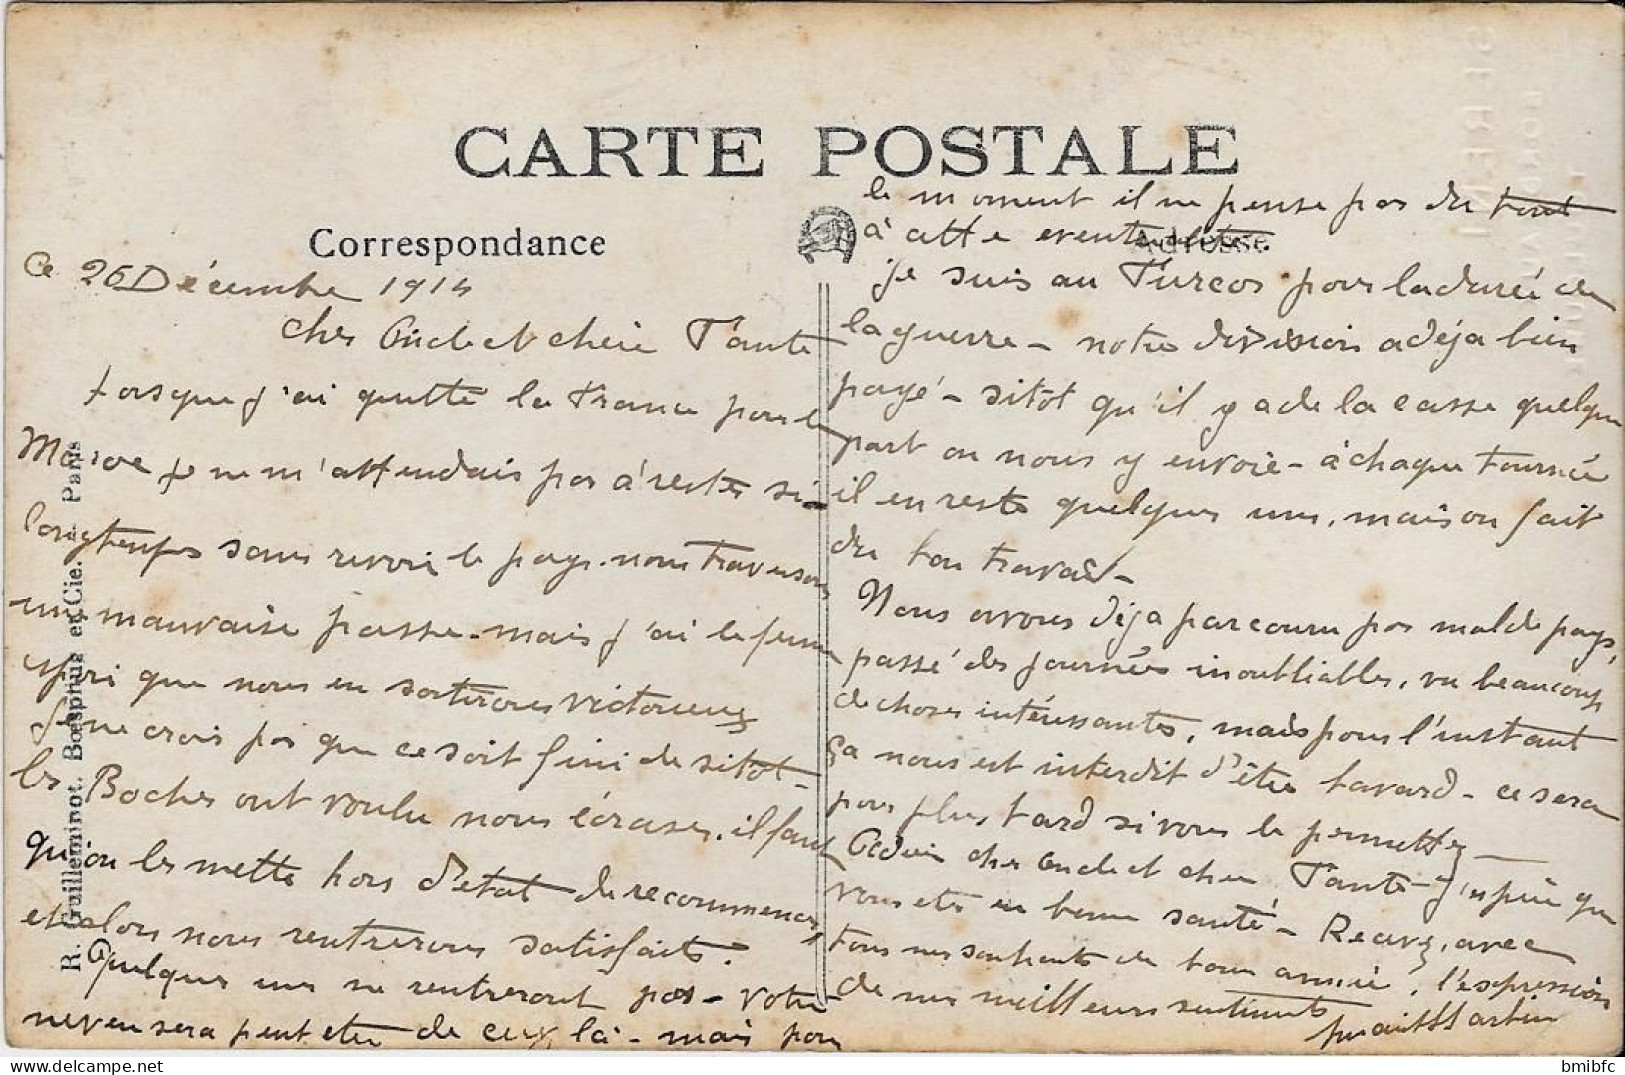 CARTE POSTALE
Correspondance
Adresse
R. Guilleminot, Bœspflug et Cie. - Paris
Ce 26 Décembre 1914
Cher Oncle et chère Tante
Lorsque j'ai quitté la France pour le
Maroc je ne m'attendais pas à rester si
longtemps sans revoir le pays. nous traversons
une mauvaise passe - mais j'ai le ferme
espoir que nous en sortirons victorieux
Je ne crois pas que ce soit fini de sitot -
les Boches ont voulu nous écraser, il faut
qu'on les mette hors d'état de recommencer
et alors nous rentrerons satisfaits.
Quelques uns ne rentreront pas - votre
neveu sera peut etre de ceux là - mais pour
le moment il ne pense pas du tout
à cette eventualité.
je suis au Turcos pour la durée de
la guerre - notre division a déja bien
payé - sitôt qu'il y a de la casse quelque
part on nous y envoie - à chaque tournée
il en reste quelques uns, mais on fait
du bon travail -
Nous avons déja parcouru pas mal de pays,
passé des journées inoubliables, vu beaucoup
de choses intéressantes, mais pour l'instant
ça nous est interdit d'être bavard - ce sera
pour plus tard si vous le permettez -
Adieu cher Oncle et chère Tante - J'espère que
vous etes en bonne santé - Recevez, avec
tous mes souhaits de bonne année, l'expression
de mes meilleurs sentiments
Martin
bmibfc